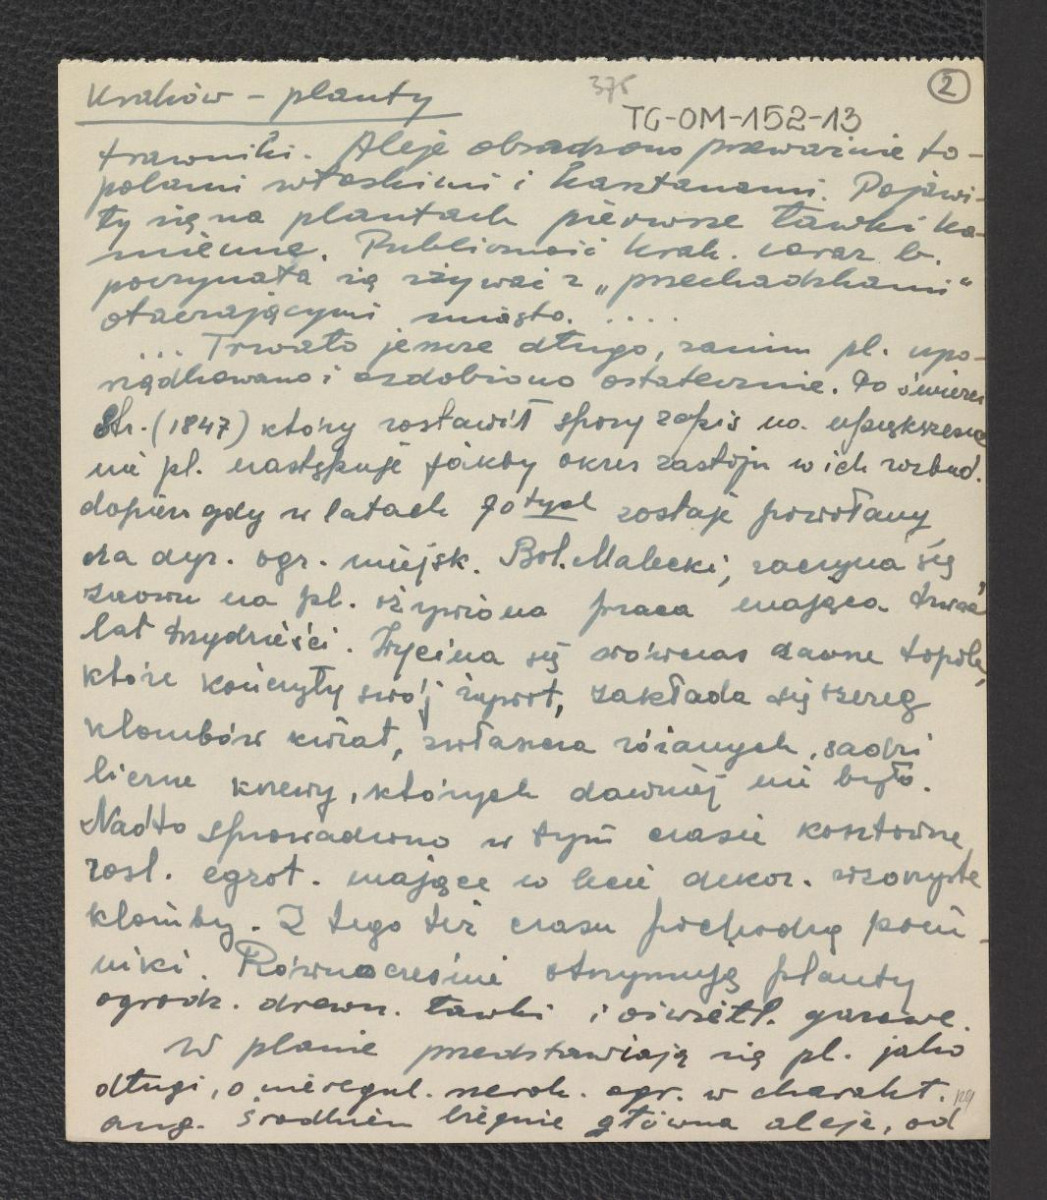 Kraków – planty
375
2
TG-OM-152-13
trawniki. Aleje obsadzono przeważnie to-
polami włoskimi i kasztanami. Pojawi-
ły się na plantach pierwsze ławki ka-
mienne. Publiczność krak. coraz b.
poczynała się zżywać z „przechadzkami"
otaczającymi miasto. ....
... Trwało jeszcze długo, zanim pl. upo-
rządkowano i ozdobiono ostatecznie. Po śmierci
Str. (1847) który zostawił spory zapis na upiększenie
nie pl. następuje jakby okres zastoju w ich rozbud.
dopiero gdy w latach 70tych zostaje powołany
na dyr. ogr. miejsk. Bol. Malecki, zaczyna się
znowu na pl. ożywiona praca mająca trwać
lat trzydzieści. Wycina się wówczas dawne topole,
które kończyły swój żywot, zakłada się szereg
klombów kwiat, zwłaszcza różanych, sadzi
liczne krzewy, których dawniej nie było.
Nadto sprowadzono w tym czasie kosztowne
rośl. egzot. mające w lecie dekor. wzorzyste
klomby. Z tego też czasu pochodzą pom-
niki. Równocześnie otrzymują planty
ogrodz. drewn. ławki i oświetl. gazowe.
W planie przedstawiają się pl. jako
długi, o nieregul. szerok. ogr. w charakt.
ang. Środkiem biegnie główna aleja, od